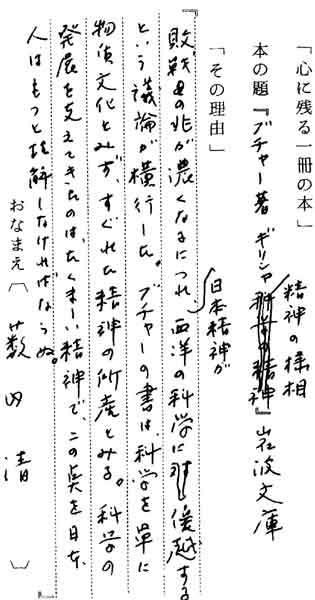 「心に残る一冊の本」
精神の様相
本の題『ブチャー著 ギリシャ』岩波文庫
「その理由」
日本精神が
『敗戦の兆が濃くなるにつれ、西洋の科学に優越する
という議論が横行した。ブチャーの書は、科学を単に
物質文化とみず、すぐれた精神の所産とみる。科学の
発展を支えてきたのは、たくましい精神で、この点を日本
人はもっと理解しなければならぬ。』
おなまえ〔薮内 清〕